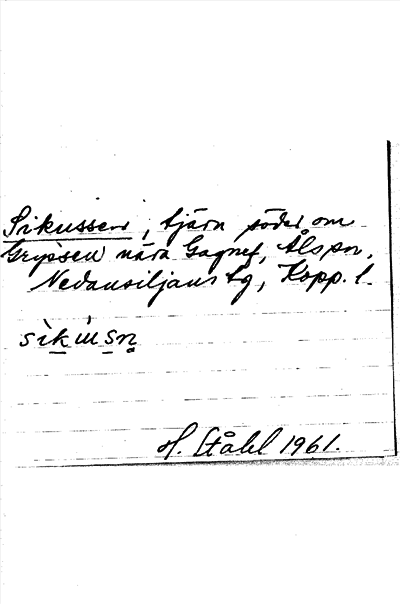 Sikussen, tjärn söder om
Gripsen nära Gagnef, Åls sn,
Nedansiljans tg, Kopp. l.
sìkússn̥
H. Ståhl 1961.